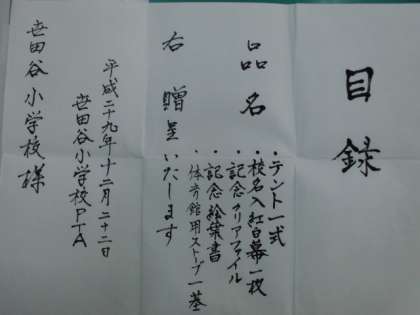 目録
品名
・テント一式
・校名入紅白幕一枚
・記念クリアファイル
・記念絵葉書
・体育館用ストーブ一基
右贈呈いたします
平成二十九年十二月二十二日
世田谷小学校PTA
世田谷小学校様